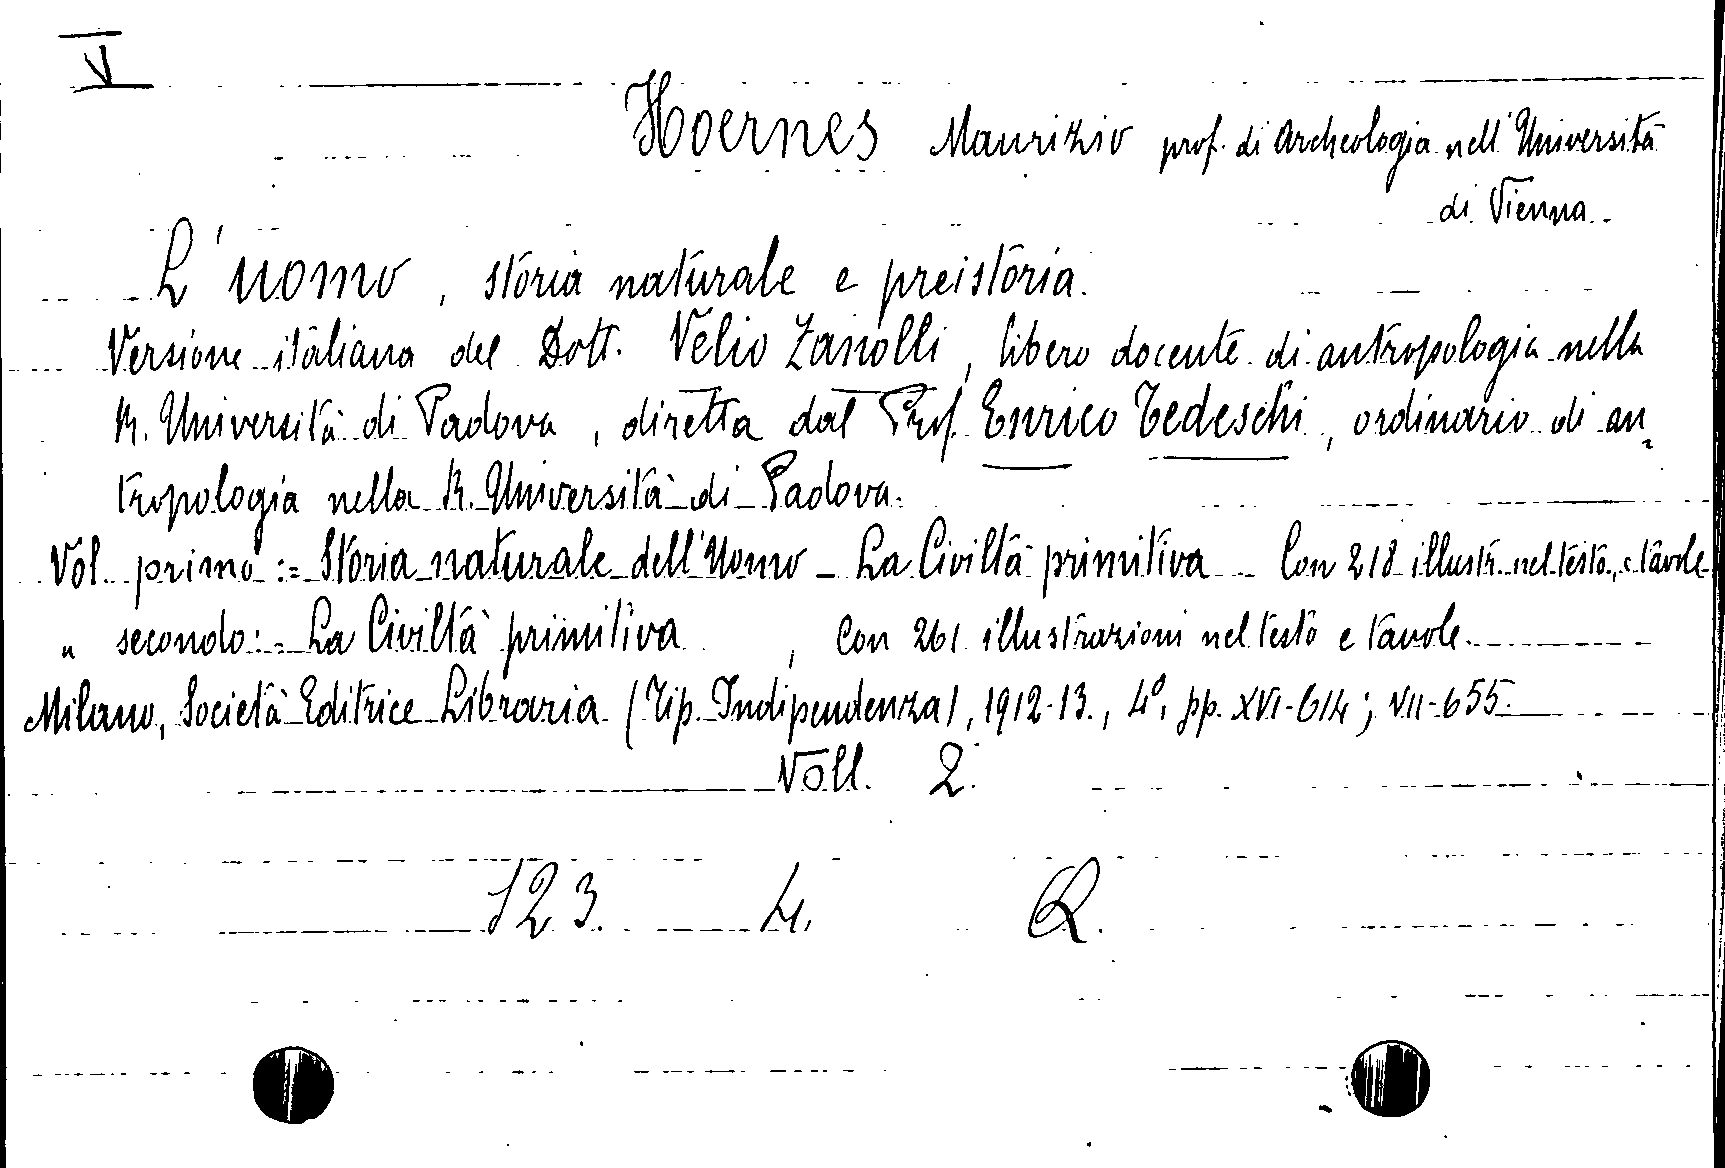 V
Hoernes Maurizio prof. di Archeologia nell'Università
di Vienna.
L'uomo, storia naturale e preistoria.
Versione italiana del Dott. Velio Zanolli, libero docente di antropologia nella
R. Università di Padova, diretta dal Prof. Enrico Tedeschi, ordinario di an-
tropologia nella R. Università di Padova.
Vol. primo:= Storia naturale dell'Uomo - La Civiltà primitiva - Con 218 illustr. nel testo, e tavole
" secondo:= La Civiltà primitiva, Con 261 illustrazioni nel testo e tavole.
Milano, Società Editrice Libraria (Tip. Indipendenza), 1912-13., 4°, pp. XVI-614; VII-655.
Voll. 2.
123. 4. Q.